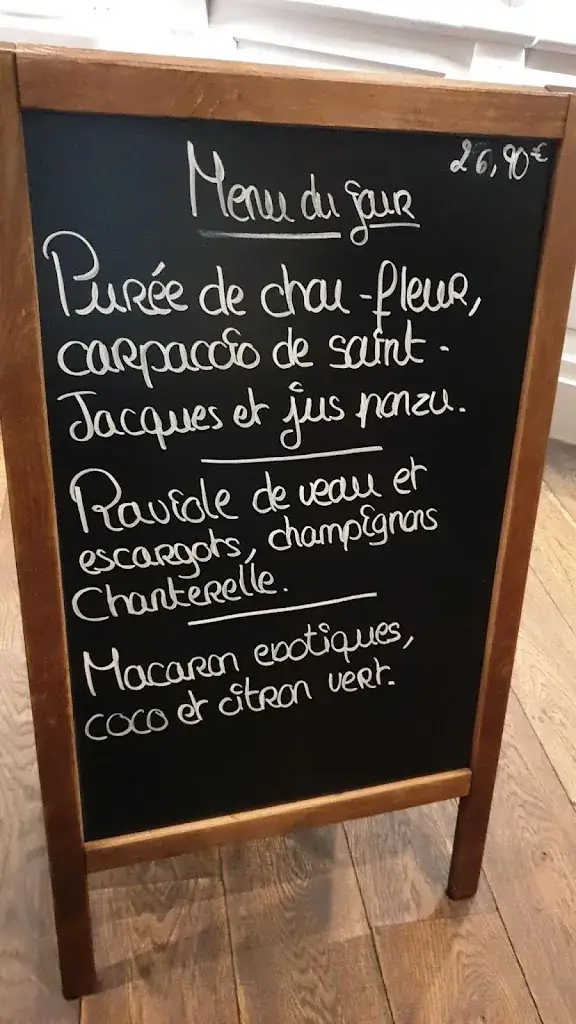 26,90€
Menu du jour
Purée de chou-fleur,
carpaccio de saint-
Jacques et jus ponzu.
Raviole de veau et
escargots, champignons
Chanterelle.
Macaron exotiques,
coco et citron vert.